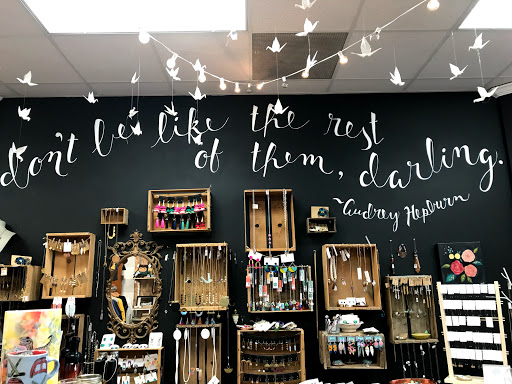 don't be like the rest
of them, darling.
~Audrey Hepburn